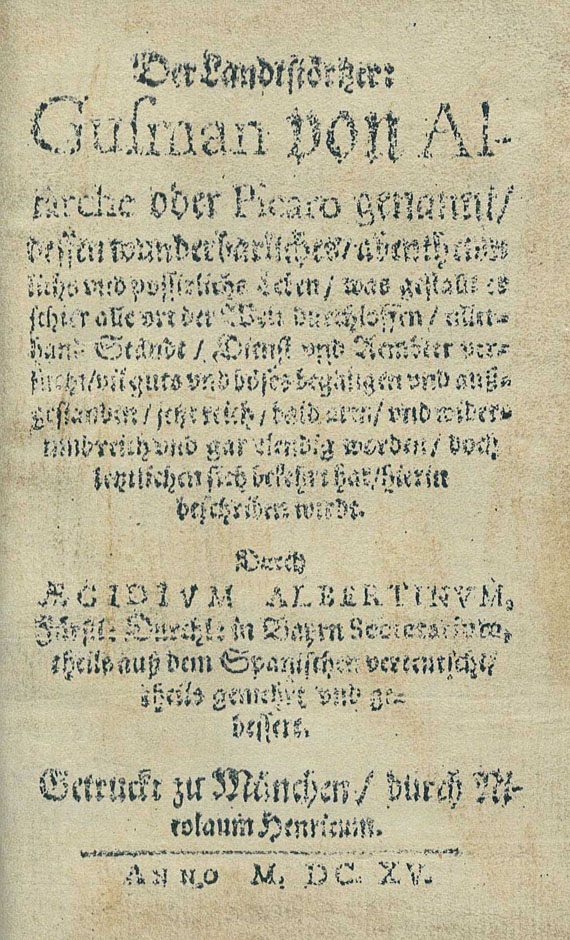 Der Landtstörtzer:
Gusman von Al-
farche oder Picaro genannt/
dessen wunderbarliches/ abenthewr-
lichs vnd possirlichs Leben/ was gestallt er
schier alle ort der Welt durchloffen/ aller-
hand Ständt/ Dienst vnd Aembter ver-
sucht/ vil guts vnd böses begangen vnd auß-
gestanden/ jetzt reich/ bald arm/ vnd wider-
umb reich vnd gar elendig worden/ doch
letztlichen sich bekehrt hat/ hierin
beschriben wirdt.
Durch
ÆGIDIVM ALBERTINVM,
Fürstl: Durchl: in Bayrn Secretarium,
theils auß dem Spanischen verteutscht/
theils gemehrt vnd ge-
bessert.
Getruckt zu München/ durch Ni-
colaum Henricum.
ANNO M. DC. XV.